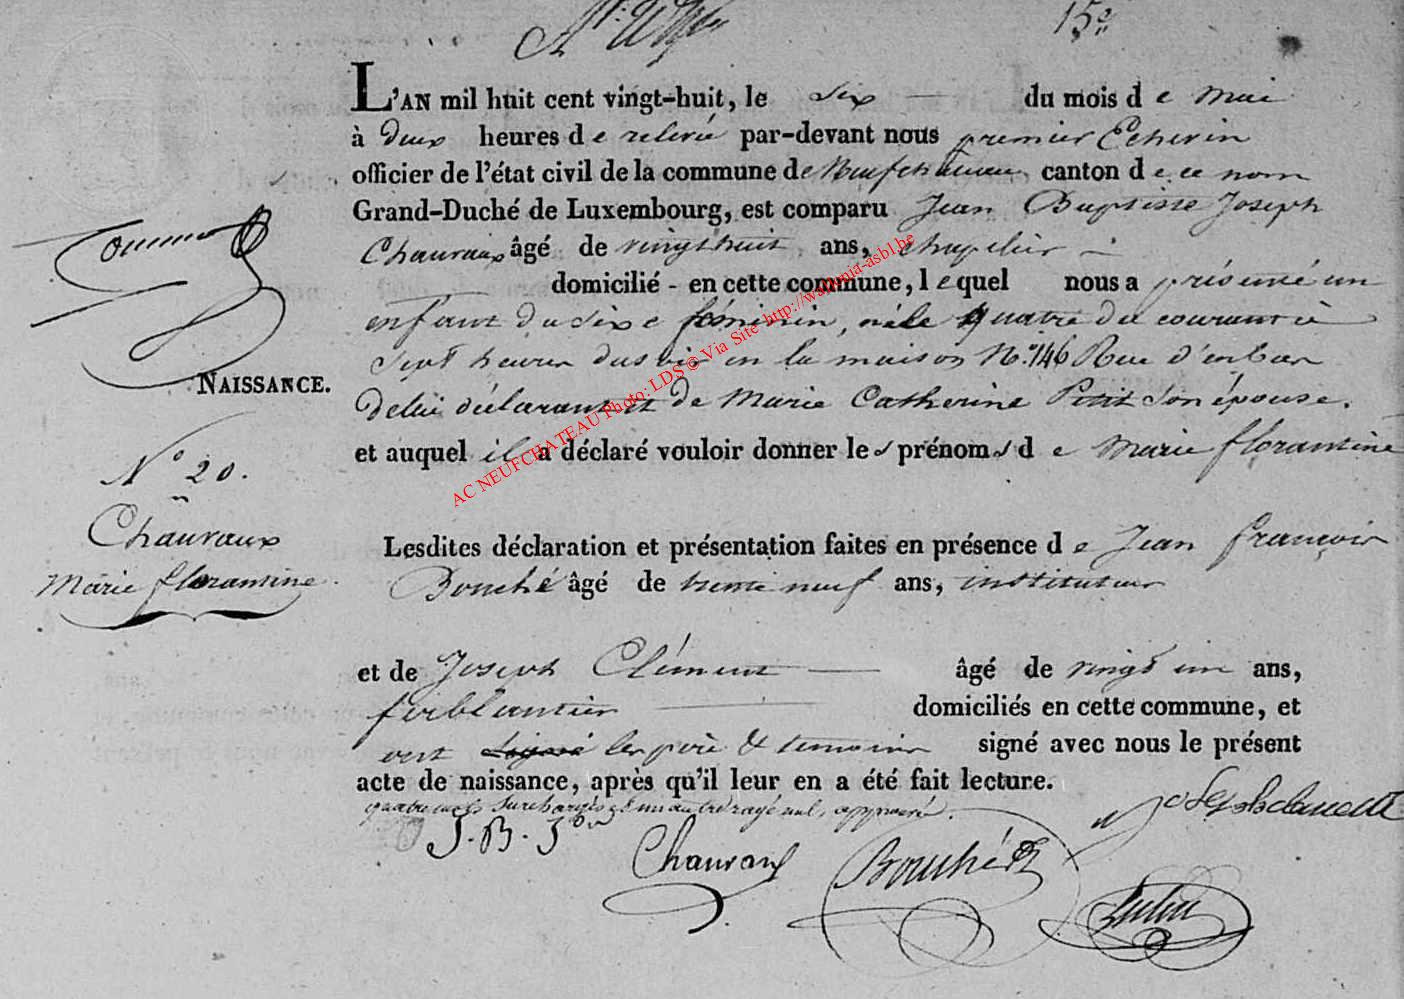 15e
L'AN mil huit cent vingt-huit, le six du mois de mai
à deux heures de relevée par-devant nous premier Echevin
officier de l'état civil de la commune de Neufchateau canton de ce nom
Grand-Duché de Luxembourg, est comparu Jean Baptiste Joseph
Chauvaux âgé de vingt huit ans, chapelier
domicilié - en cette commune, lequel nous a présenté un
enfant du sexe féminin, né le quatre du courant à
sept heures du soir en la maison No. 146 Rue d'en bas
de lui déclarant et de Marie Catherine Petit son épouse.
et auquel il a déclaré vouloir donner les prénoms de Marie florantine
NAISSANCE.
No 20.
Chauvaux
Marie florantine.
Lesdites déclaration et présentation faites en présence de Jean françois
Bouché âgé de trente neuf ans, instituteur
et de Joseph Clément âgé de vingt un ans,
ferblantier domiciliés en cette commune, et
ont signé les père & temoins signé avec nous le présent
acte de naissance, après qu'il leur en a été fait lecture.
quatre mots surchargés et un autre rayé nul, approuvé.
J. B. Jh
Chauvaux
Bouché
AC NEUFCHATEAU Photo: LDS © Via Site http://wallonia-asbl.be